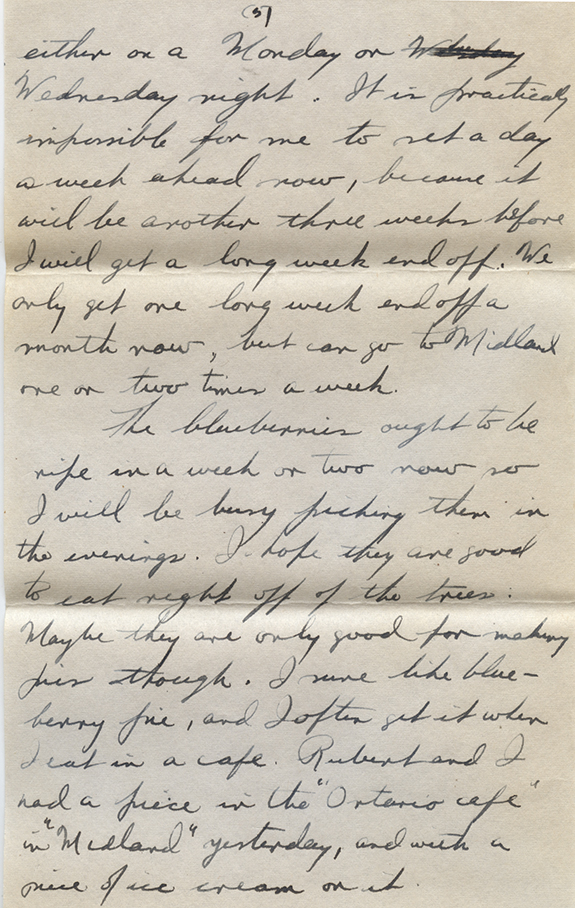 (5)
either on a Monday or
Wednesday night. It is practically
impossible for me to set a day
a week ahead now, because it
will be another three weeks before
I will get a long week end off. We
only get one long week end off a
month now, but can go to Midland
one or two times a week.
The blueberries ought to be
ripe in a week or two now so
I will be busy picking them in
the evenings. I hope they are good
to eat right off of the trees.
Maybe they are only good for making
pies though. I sure like blue-
berry pie, and I often get it when
I eat in a cafe. Rubert and I
had a piece in the "Ontario cafe"
in "Midland" yesterday, and with a
piece of ice cream on it.